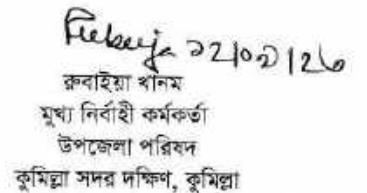 Rubaiya ২২/০১/২৬
রুবাইয়া খানম
মুখ্য নির্বাহী কর্মকর্তা
উপজেলা পরিষদ
কুমিল্লা সদর দক্ষিণ, কুমিল্লা